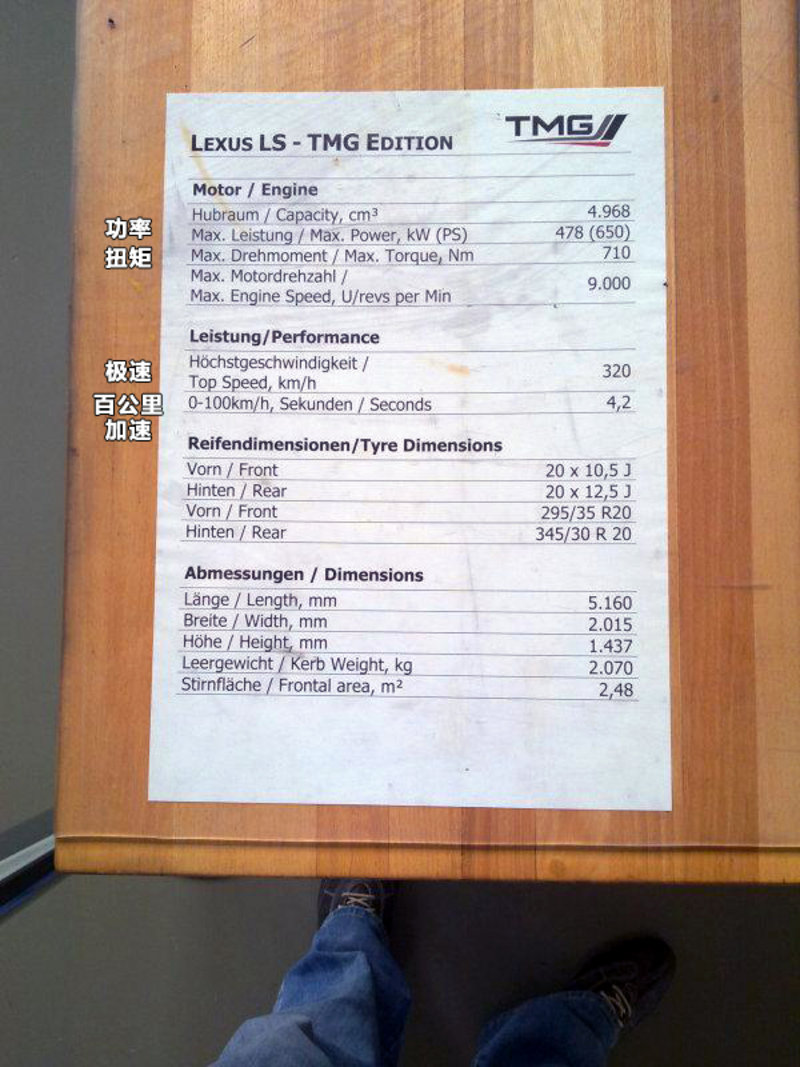 LEXUS LS - TMG EDITION
TMG
Motor / Engine
Hubraum / Capacity, cm³ 4.968
功率 Max. Leistung / Max. Power, kW (PS) 478 (650)
扭矩 Max. Drehmoment / Max. Torque, Nm 710
Max. Motordrehzahl /
Max. Engine Speed, U/revs per Min 9.000
Leistung/Performance
Höchstgeschwindigkeit /
极速 Top Speed, km/h 320
百公里 0-100km/h, Sekunden / Seconds 4,2
加速
Reifendimensionen/Tyre Dimensions
Vorn / Front 20 x 10,5 J
Hinten / Rear 20 x 12,5 J
Vorn / Front 295/35 R20
Hinten / Rear 345/30 R 20
Abmessungen / Dimensions
Länge / Length, mm 5.160
Breite / Width, mm 2.015
Höhe / Height, mm 1.437
Leergewicht / Kerb Weight, kg 2.070
Stirnfläche / Frontal area, m² 2,48